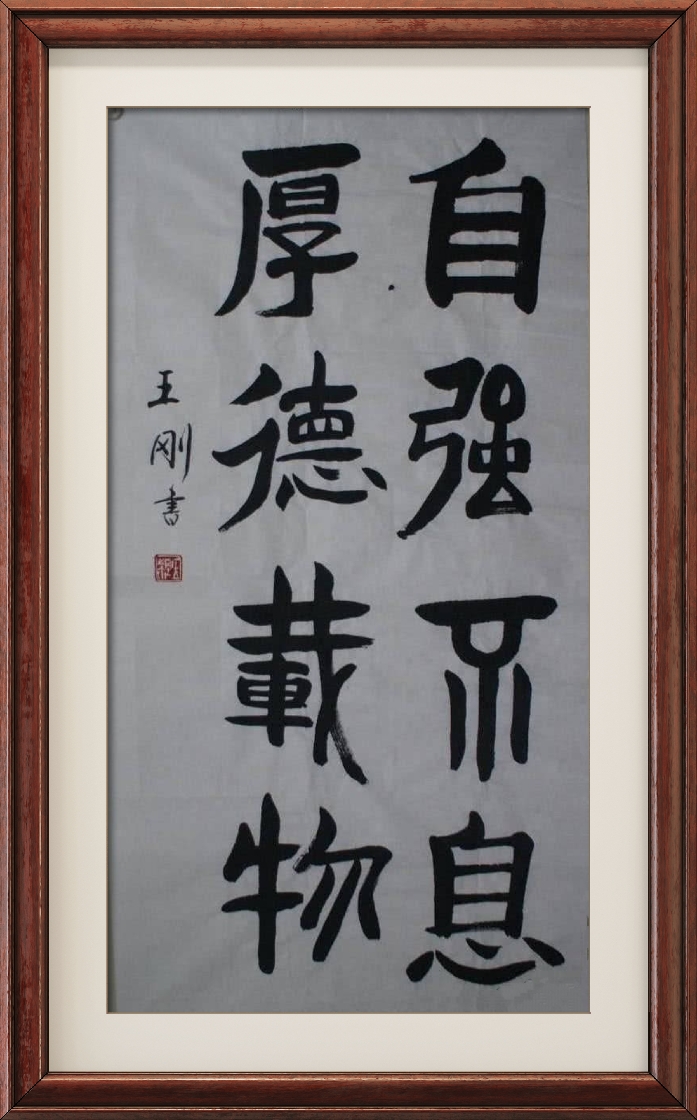 自强不息
厚德载物
王刚书